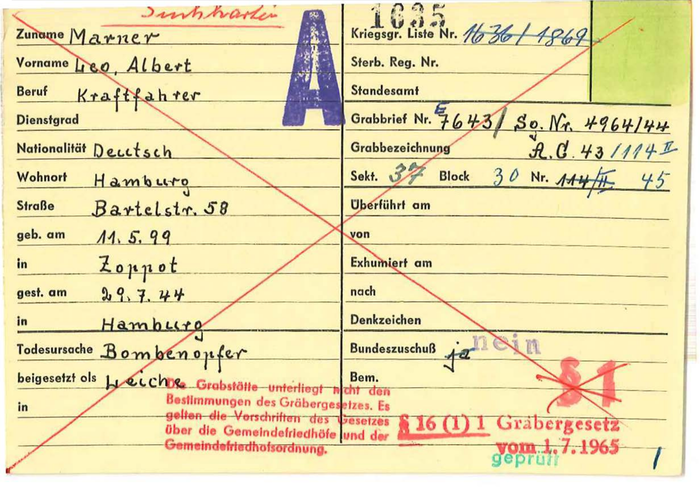 Suchkartei
1635
Zuname Marner
Vorname Leo, Albert
Beruf Kraftfahrer
Dienstgrad
Nationalität Deutsch
Wohnort Hamburg
Straße Bartelstr. 58
geb. am 11.5.99
in Zoppot
gest. am 29.7.44
in Hamburg
Todesursache Bombenopfer
beigesetzt als Leiche
in
A
Kriegsgr. Liste Nr. 1636/1869
Sterb. Reg. Nr.
Standesamt
Grabbrief Nr. E 7643/ So. Nr. 4964/44
Grabbezeichnung A.C. 43/114 II
Sekt. 37 Block 30 Nr. 114/II 45
Überführt am
von
Exhumiert am
nach
Denkzeichen
Bundeszuschuß ja nein
Bem.
§ 1
Die Grabstätte unterliegt nicht den
Bestimmungen des Gräbergesetzes. Es
gelten die Vorschriften des Gesetzes
über die Gemeindefriedhöfe und der
Gemeindefriedhofsordnung.
§ 16 (1) 1 Gräbergesetz
vom 1.7.1965
geprüft
1